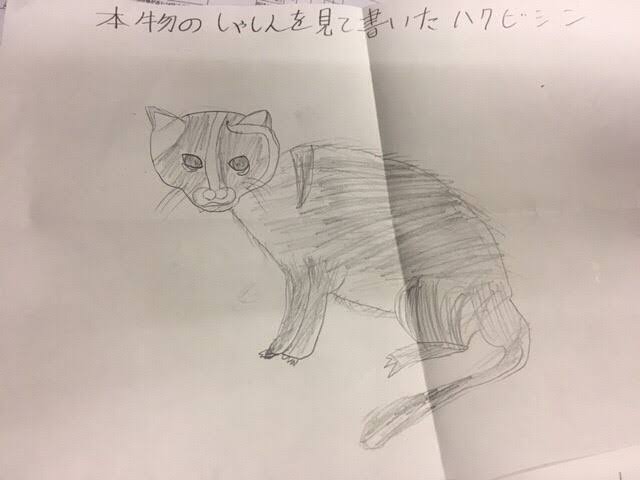 本物のしゃしんを見て書いたハクビシン